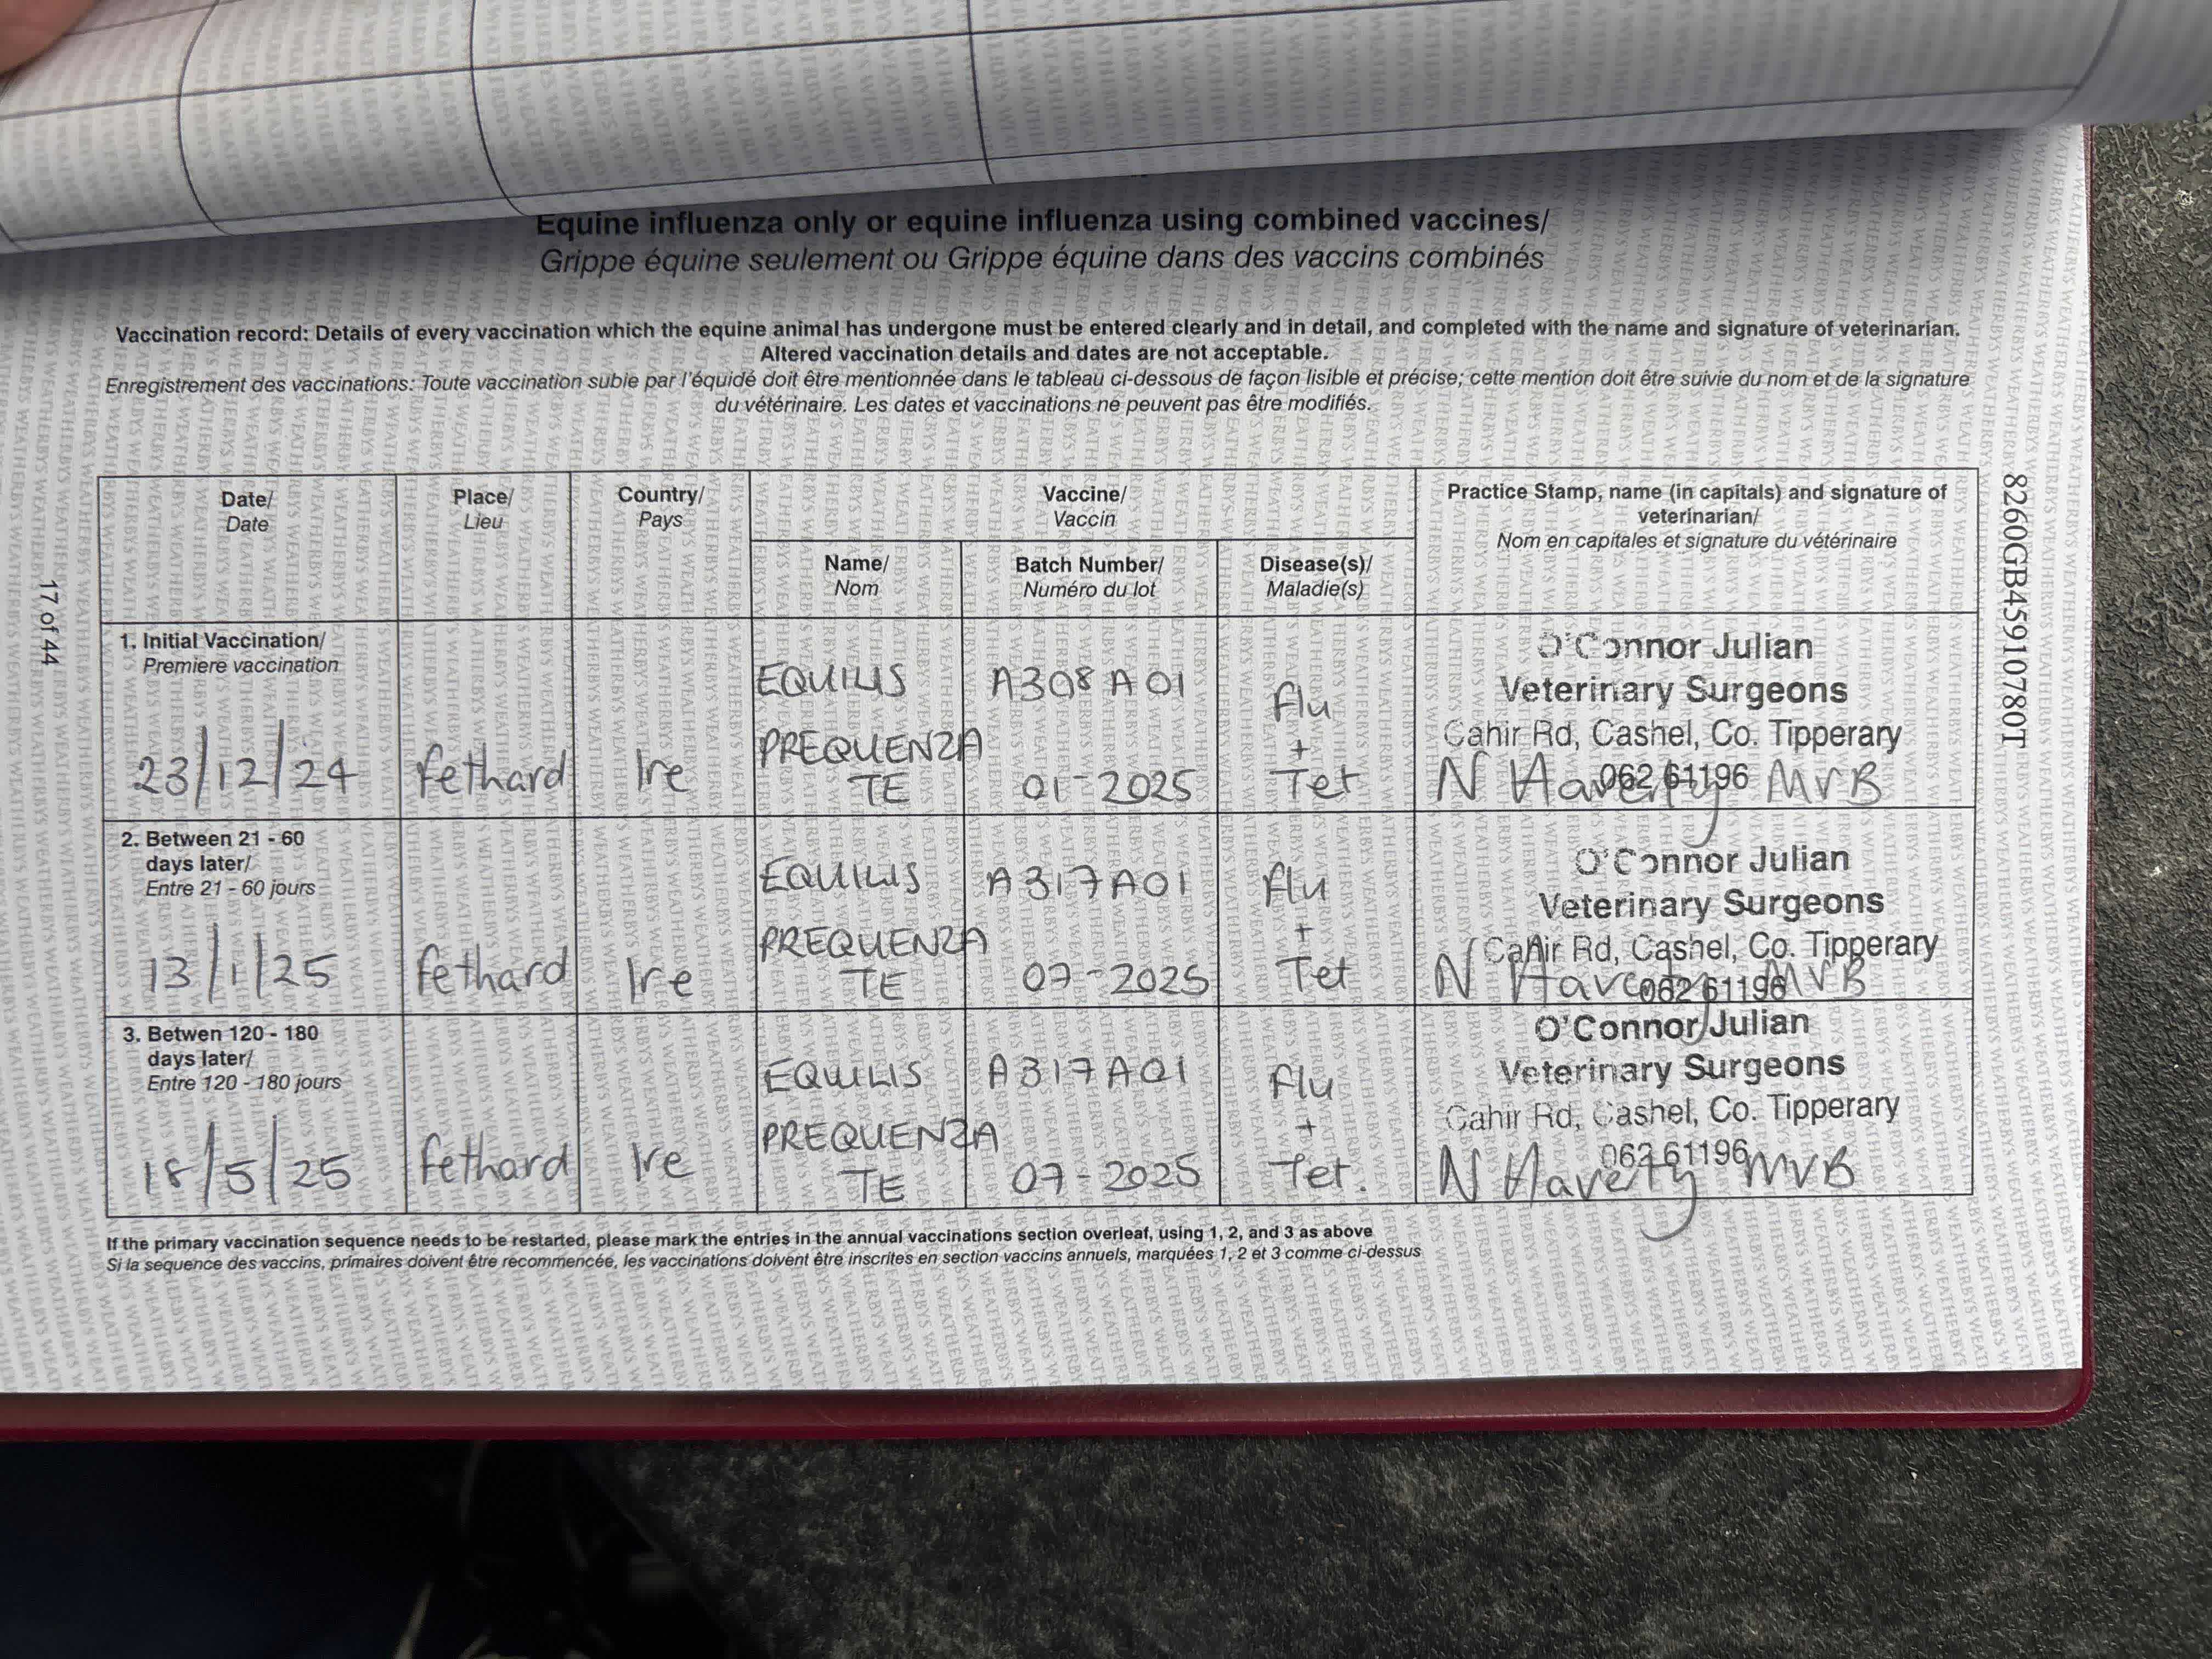 Equine influenza only or equine influenza using combined vaccines/
Grippe équine seulement ou Grippe équine dans des vaccins combinés
Vaccination record: Details of every vaccination which the equine animal has undergone must be entered clearly and in detail, and completed with the name and signature of veterinarian.
Altered vaccination details and dates are not acceptable.
Enregistrement des vaccinations: Toute vaccination subie par l'équidé doit être mentionnée dans le tableau ci-dessous de façon lisible et précise; cette mention doit être suivie du nom et de la signature
du vétérinaire. Les dates et vaccinations ne peuvent pas être modifiés.
Date/
Date
Place/
Lieu
Country/
Pays
Vaccine/
Vaccin
Name/
Nom
Batch Number/
Numéro du lot
Disease(s)/
Maladie(s)
Practice Stamp, name (in capitals) and signature of
veterinarian/
Nom en capitales et signature du vétérinaire
1. Initial Vaccination/
Premiere vaccination
23/12/24
Fethard
Ire
EQUILIS
PREQUENZA
TE
A308A01
01-2025
Flu
+
Tet
O'Connor Julian
Veterinary Surgeons
Cahir Rd, Cashel, Co. Tipperary
062 61196
N Haverty MVB
2. Between 21 - 60
days later/
Entre 21 - 60 jours
13/1/25
Fethard
Ire
EQUILIS
PREQUENZA
TE
A317A01
07-2025
Flu
+
Tet
O'Connor Julian
Veterinary Surgeons
Cahir Rd, Cashel, Co. Tipperary
062 61196
N Haverty MVB
3. Betwen 120 - 180
days later/
Entre 120 - 180 jours
18/5/25
Fethard
Ire
EQUILIS
PREQUENZA
TE
A317A01
07-2025
Flu
+
Tet.
O'Connor Julian
Veterinary Surgeons
Cahir Rd, Cashel, Co. Tipperary
062 61196
N Haverty MVB
If the primary vaccination sequence needs to be restarted, please mark the entries in the annual vaccinations section overleaf, using 1, 2, and 3 as above
Si la sequence des vaccins, primaires doivent être recommencée, les vaccinations doivent être inscrites en section vaccins annuels, marquées 1, 2 et 3 comme ci-dessus
17 of 44
8260GB45910780T